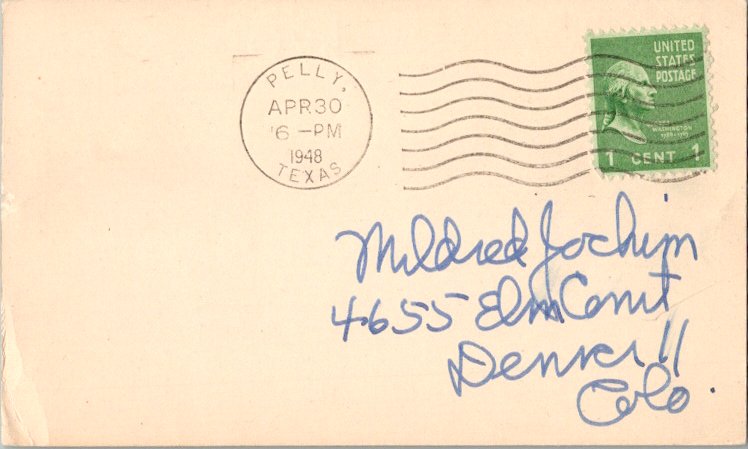 PELLY,
APR 30
6 - PM
1948
TEXAS
UNITED
STATES
POSTAGE
WASHINGTON
1 CENT 1
Mildred Jochim
4655 Elm Court
Denver 11
Colo.